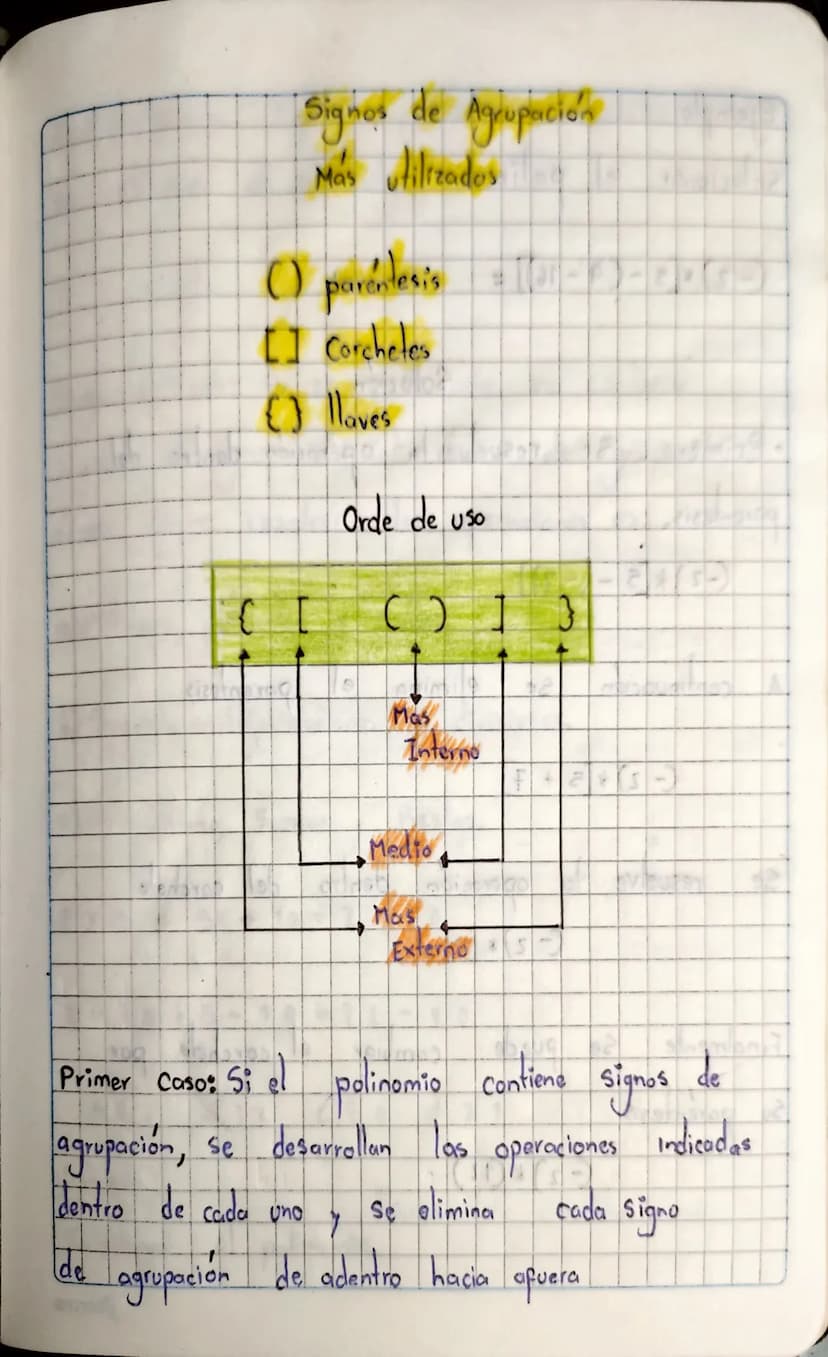 Signos de Agrupación
Más utilizados
( ) paréntesis
[ ] Corchetes
{ } llaves
Orde de uso
{ [ ( ) ] }
Mas
Interno
Medio
Mas
Externo
Primer caso: Si el polinomio contiene signos de
agrupación, se desarrollan las operaciones indicadas
dentro de cada uno y se elimina cada signo
de agrupación de adentro hacia afuera